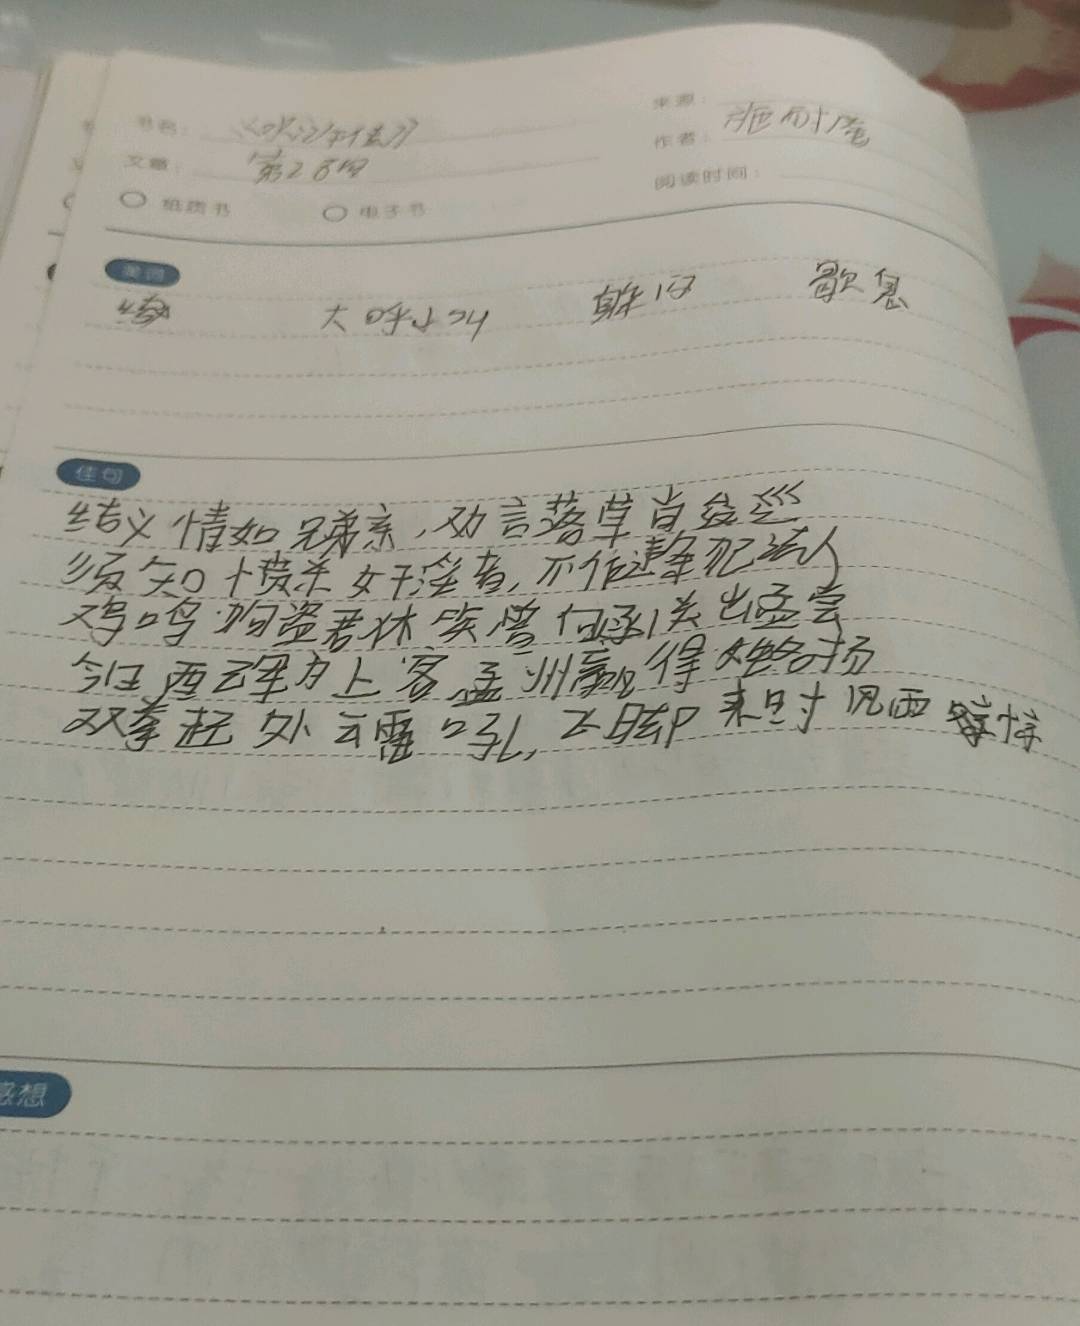 来源：
书名：《水浒传》
作者：施耐庵
文章：第28回
阅读时间：
纸质书 电子书
美词
大呼小叫 歇息
佳句
结义情如兄弟亲，劝言落草尚逡巡
须知愤杀奸淫者，不作违条犯法人
鸡鸣狗盗君休笑曾向函关出孟尝
今日西军为上客孟州赢得姓名扬
双拳起处云雷吼，飞脚来时风雨惊
感想